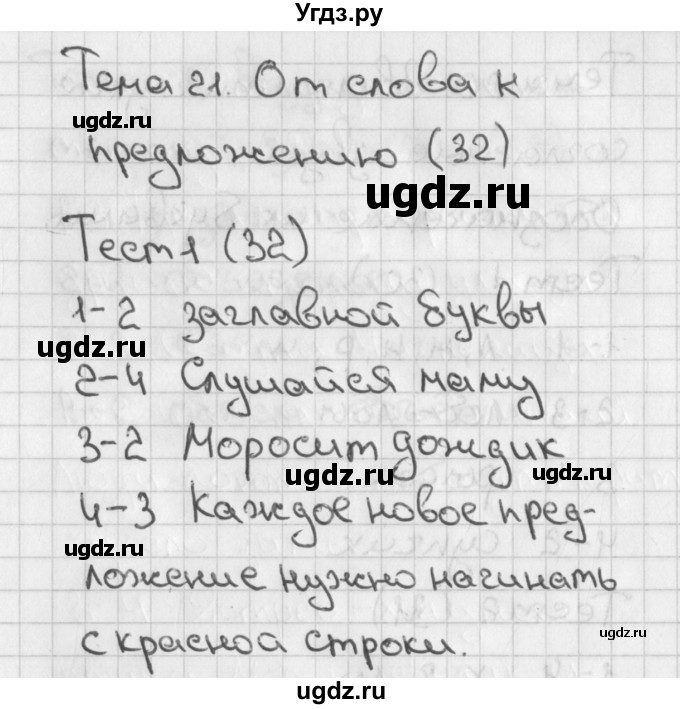 Угдз.ру
Тема 21. От слова к
ugdz.ru
предложению (32)
ugdz.ru
Тест 1 (32)
1-2 заглавной буквы
ugdz.ru
2-4 Слушайся маму
3-2 Моросит дождик
ugdz.ru ugdz.ru
4-3 Каждое новое пред-
ugdz.ru
ложение нужно начинать
с красноа строки.
ugdz.ru
ugdz.ru
ugdz.ru